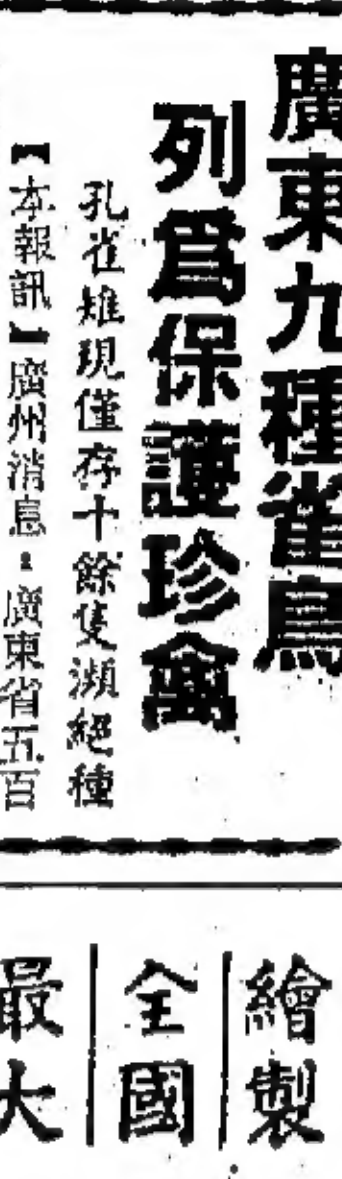 廣東九種雀鳥
列爲保護珍禽
孔雀雉現僅存十餘隻瀕絕種
【本報訊】廣州消息：廣東省五百
繪製
全國
最大